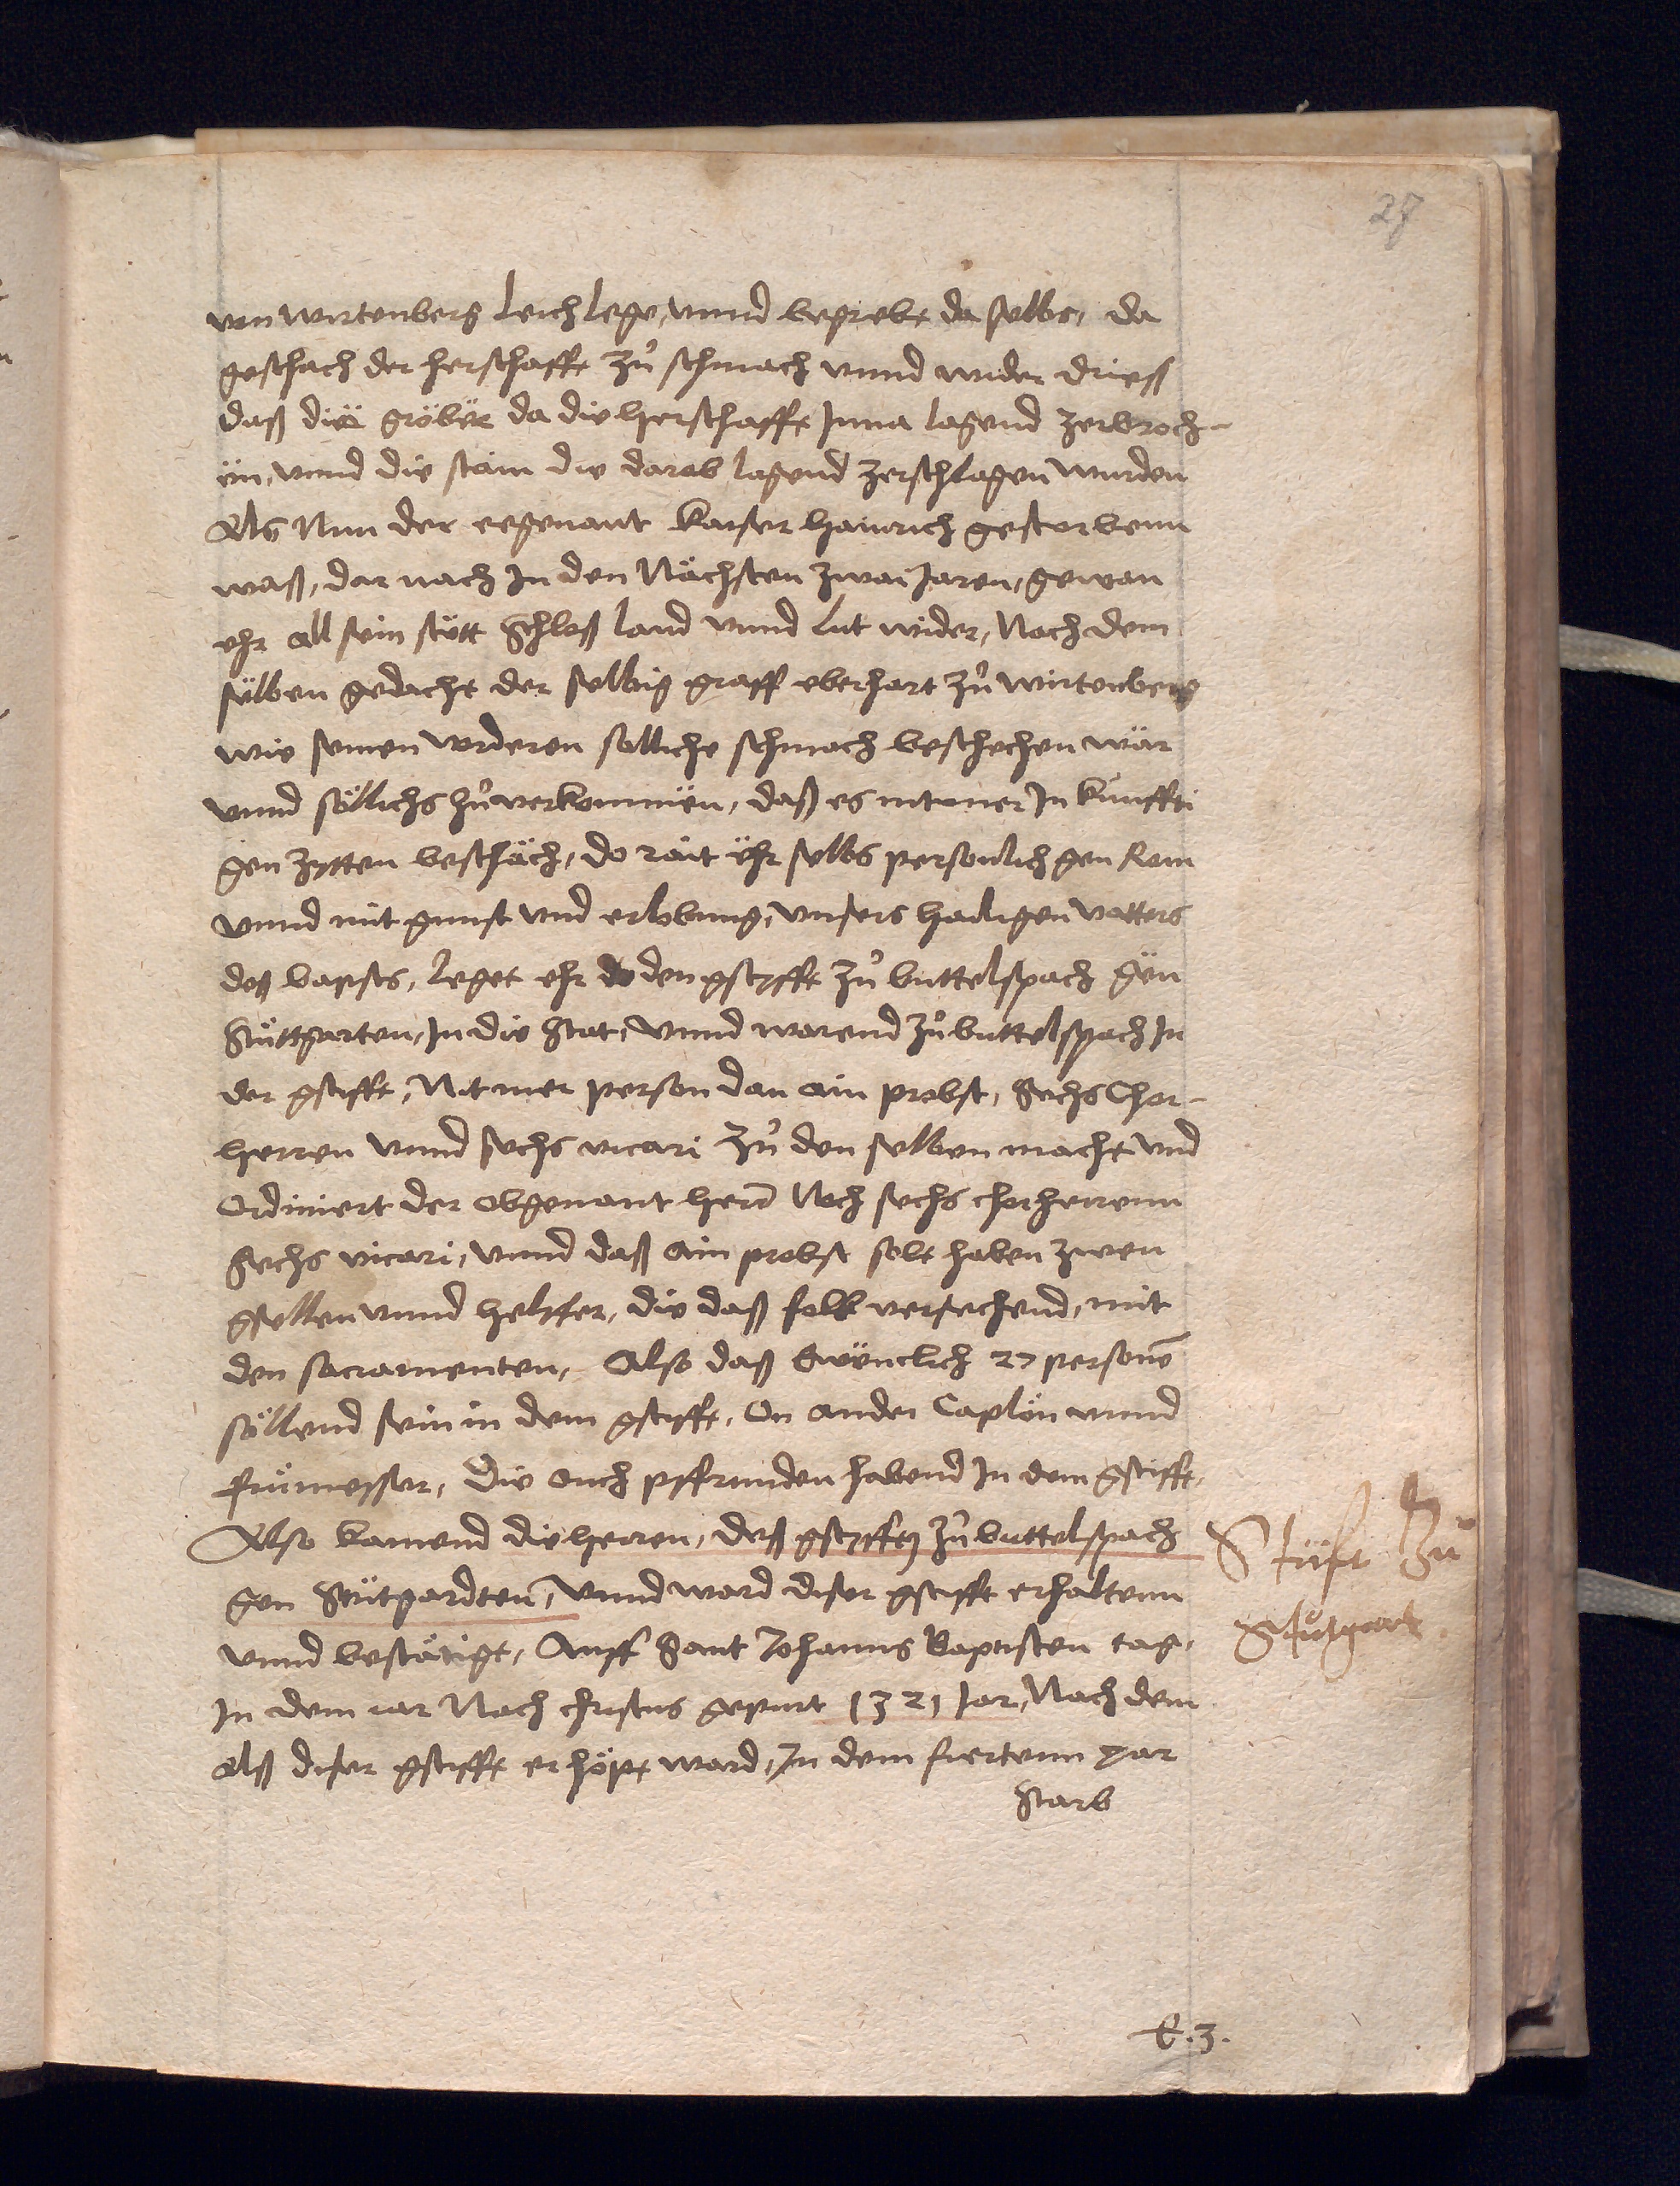 27
von wirtenberg leich lege, vnnd begrebt da selbs, da
geschach der herschafft zů schmach vnnd wider drieß
daß die gröber da die herschafft Inna lagend zerbroch-
en, vnnd die stain die darob lagend zerschlagen wurden
Als Nun der eegenant kaiser hainrich gestorbenn
waß, dar nach In den Nächsten zwai Jaren, gewan
ehr all sein stött Schloß land vnnd Lut wider, Nach dem
sälben gedacht der selbig graff eberhart zů wirtenberg
wie seinen vorderen solliche schmach beschechen wär
vnnd söllichs zů verkommen, daß es nit mer In kunffti
gen zytten beschäch, do rait ehr selbs personlich gen Rom
vnnd mit gunst vnd erlobung, vnsers hailigen vatters
deß bapsts, leget ehr den gstyfft zů buttelspach gen
Stuttgarten, In die Stat, vnnd warend zů buttelspach In
der gstifft, Nit mer person dan ain probst, Sechs Chor-
herren vnnd sechs vicari zů den selben macht vnd
Ordiniert der obgenant herr Noch sechs chorherrenn
Sechs vicari, vnnd daß ain probst solt haben zwen
gsellen vnnd helffer, die daß folk versechend, mit
den sacramenten, Also daß Ewenclich 27 persone
söllend sein in dem gstifft, On ander Caplön vnnd
frümesser, die ouch pffrunden habend In dem gstifft,
Also kamend die herren, deß gstyfftz zů buttelspach
gen Stütgardten, vnnd ward diser gstifft erhaltenn
vnnd bestätigt, Auff Sant Johanns Baptisten tag,
In dem iar Nach christus gepurt 1321 Jar, Nach dem
alß diser gstifft er höpt ward, In dem fiertenn yar
Starb
Stüft Zů
Stutgart.
E.3.